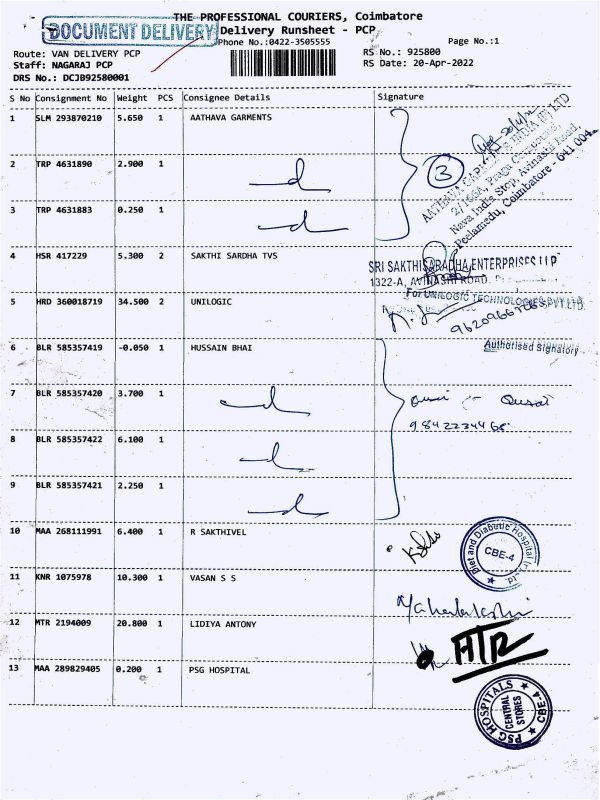 THE PROFESSIONAL COURIERS, Coimbatore
DOCUMENT DELIVERY
Delivery Runsheet - PCP
Phone No.:0422-3505555
Page No.:1
Route: VAN DELIVERY PCP
RS No.: 925800
Staff: NAGARAJ PCP
RS Date: 20-Apr-2022
DRS No.: DCJB92580001
S No Consignment No Weight PCS Consignee Details Signature
1 SLM 293870210 5.650 1 AATHAVA GARMENTS
2 TRP 4631890 2.900 1
3 TRP 4631883 0.250 1
3
2/156A, 
Nava India Stop, Avinashi Road,
Peelamedu, Coimbatore - 641 004
4 HSR 417229 5.300 2 SAKTHI SARDHA TVS
SRI SAKTHISARADHA ENTERPRISES LLP
1322-A, AVINASHI ROAD
5 HRD 360018719 34.500 2 UNILOGIC
For UNILOGIC TECHNOLOGIES PVT LTD.
Authorised Signatory
6 BLR 585357419 -0.050 1 HUSSAIN BHAI
7 BLR 585357420 3.700 1
8 BLR 585357422 6.100 1
9 BLR 585357421 2.250 1
10 MAA 268111991 6.400 1 R SAKTHIVEL
Diet and Diabetic Hospital (P) Ltd.
CBE-4
11 KNR 1075978 10.300 1 VASAN S S
Mahalakshmi
12 MTR 2194009 20.800 1 LIDIYA ANTONY
13 MAA 289829405 0.200 1 PSG HOSPITAL
PSG HOSPITALS
CENTRAL
STORES
CBE-4